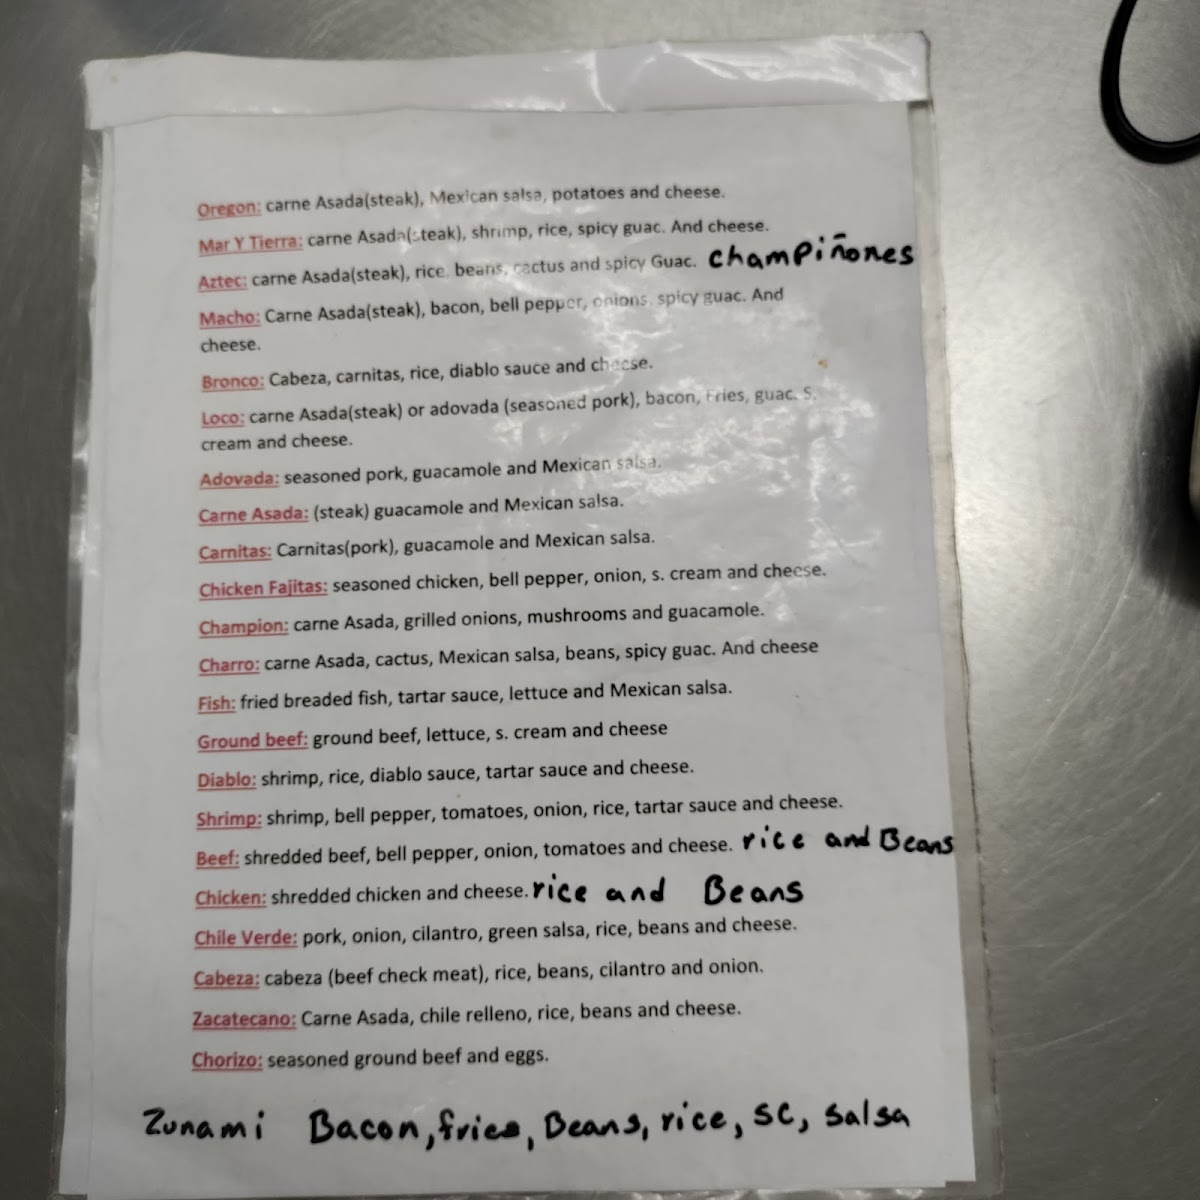 Oregon: carne Asada(steak), Mexican salsa, potatoes and cheese.
Mar Y Tierra: carne Asada(steak), shrimp, rice, spicy guac. And cheese.
Aztec: carne Asada(steak), rice, beans, cactus and spicy Guac. champiñones
Macho: Carne Asada(steak), bacon, bell pepper, onions, spicy guac. And
cheese.
Bronco: Cabeza, carnitas, rice, diablo sauce and cheese.
Loco: carne Asada(steak) or adovada (seasoned pork), bacon, Fries, guac. S.
cream and cheese.
Adovada: seasoned pork, guacamole and Mexican salsa.
Carne Asada: (steak) guacamole and Mexican salsa.
Carnitas: Carnitas(pork), guacamole and Mexican salsa.
Chicken Fajitas: seasoned chicken, bell pepper, onion, s. cream and cheese.
Champion: carne Asada, grilled onions, mushrooms and guacamole.
Charro: carne Asada, cactus, Mexican salsa, beans, spicy guac. And cheese
Fish: fried breaded fish, tartar sauce, lettuce and Mexican salsa.
Ground beef: ground beef, lettuce, s. cream and cheese
Diablo: shrimp, rice, diablo sauce, tartar sauce and cheese.
Shrimp: shrimp, bell pepper, tomatoes, onion, rice, tartar sauce and cheese.
Beef: shredded beef, bell pepper, onion, tomatoes and cheese. rice and Beans
Chicken: shredded chicken and cheese. rice and Beans
Chile Verde: pork, onion, cilantro, green salsa, rice, beans and cheese.
Cabeza: cabeza (beef check meat), rice, beans, cilantro and onion.
Zacatecano: Carne Asada, chile relleno, rice, beans and cheese.
Chorizo: seasoned ground beef and eggs.
Zunami Bacon, fries, Beans, rice, SC, Salsa